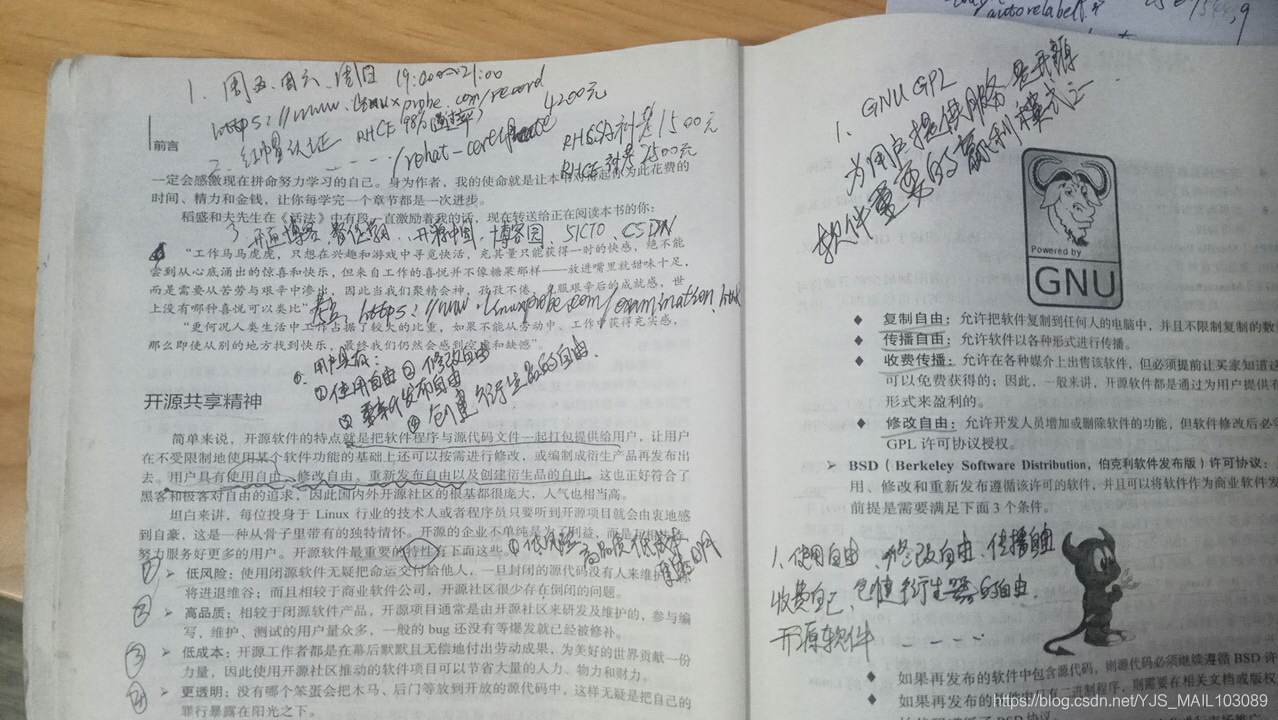 autorelabel
1. 周五、周六、周日 19:00~21:00
https://www.linuxprobe.com/record
2. 红帽认证 RHCE 98%(通过率) 4200元
RHCSA补差1500元
RHCE补差2500元
前言
一定会感激现在拼命努力学习的自己。身为作者，我的使命就是让本书对得起你为此花费的
时间、精力和金钱，让你每学完一个章节都是一次进步。
稻盛和夫先生在《活法》中有段一直激励着我的话，现在转送给正在阅读本书的你：
3. 开通博客 开源中国、博客园 51CTO、CSDN
“工作马马虎虎，只想在兴趣和游戏中寻觅快活，充其量只能获得一时的快感，绝不能
尝到从心底涌出的惊喜和快乐，但来自工作的喜悦并不像糖果那样——放进嘴里就甜味十足，
而是需要从苦劳与艰辛中渗出，因此当我们聚精会神，孜孜不倦，克服艰辛后的成就感，世
上没有哪种喜悦可以类比”
https://www.linuxprobe.com/examination.html
“更何况人类生活中工作占据了较大的比重，如果不能从劳动中、工作中获得充实感，
那么即使从别的地方找到快乐，最终我们仍然会感到空虚和缺憾”。
用户具有：
①使用自由 ②修改自由
③重新发布自由
④创建衍生品的自由.
开源共享精神
简单来说，开源软件的特点就是把软件程序与源代码文件一起打包提供给用户，让用户
在不受限制地使用某个软件功能的基础上还可以按需进行修改，或编制成衍生产品再发布出
去。用户具有使用自由、修改自由、重新发布自由以及创建衍生品的自由。这也正好符合了
黑客和极客对自由的追求，因此国内外开源社区的根基都很庞大，人气也相当高。
坦白来讲，每位投身于 Linux 行业的技术人或者程序员只要听到开源项目就会由衷地感
到自豪，这是一种从骨子里带有的独特情怀。开源的企业不单纯是为了利益，而是互相
努力服务好更多的用户。开源软件最重要的特性有下面这些。
①低风险 高品质 低成本
更透明
① ➢ 低风险：使用闭源软件无疑把命运交付给他人，一旦封闭的源代码没有人来维护
将进退维谷；而且相较于商业软件公司，开源社区很少存在倒闭的问题。
② ➢ 高品质：相较于闭源软件产品，开源项目通常是由开源社区来研发及维护的，参与编
写、维护、测试的用户量众多，一般的 bug 还没有等爆发就已经被修补。
③ ➢ 低成本：开源工作者都是在幕后默默且无偿地付出劳动成果，为美好的世界贡献一份
力量，因此使用开源社区推动的软件项目可以节省大量的人力、物力和财力。
④ ➢ 更透明：没有哪个笨蛋会把木马、后门等放到开放的源代码中，这样无疑是把自己的
罪行暴露在阳光之下。
1. GNU GPL
为用户提供服务是开源
软件重要的赢利模式之一
Powered by
GNU
◆ 复制自由：允许把软件复制到任何人的电脑中，并且不限制复制的数
◆ 传播自由：允许软件以各种形式进行传播。
◆ 收费传播：允许在各种媒介上出售该软件，但必须提前让买家知道这
可以免费获得的；因此，一般来讲，开源软件都是通过为用户提供有
形式来盈利的。
◆ 修改自由：允许开发人员增加或删除软件的功能，但软件修改后必
GPL 许可协议授权。
➢ BSD（Berkeley Software Distribution，伯克利软件发布版）许可协议：
用、修改和重新发布遵循该许可的软件，并且可以将软件作为商业软件发
前提是需要满足下面 3 个条件。
1、使用自由、修改自由、传播自由
收费自己、创建衍生器的自由.
开源软件
◆ 如果再发布的软件中包含源代码，则源代码必须继续遵循 BSD 许
◆ 如果再发布的软件中只有二进制程序，则需要在相关文档或版权
https://blog.csdn.net/YJS_MAIL103089